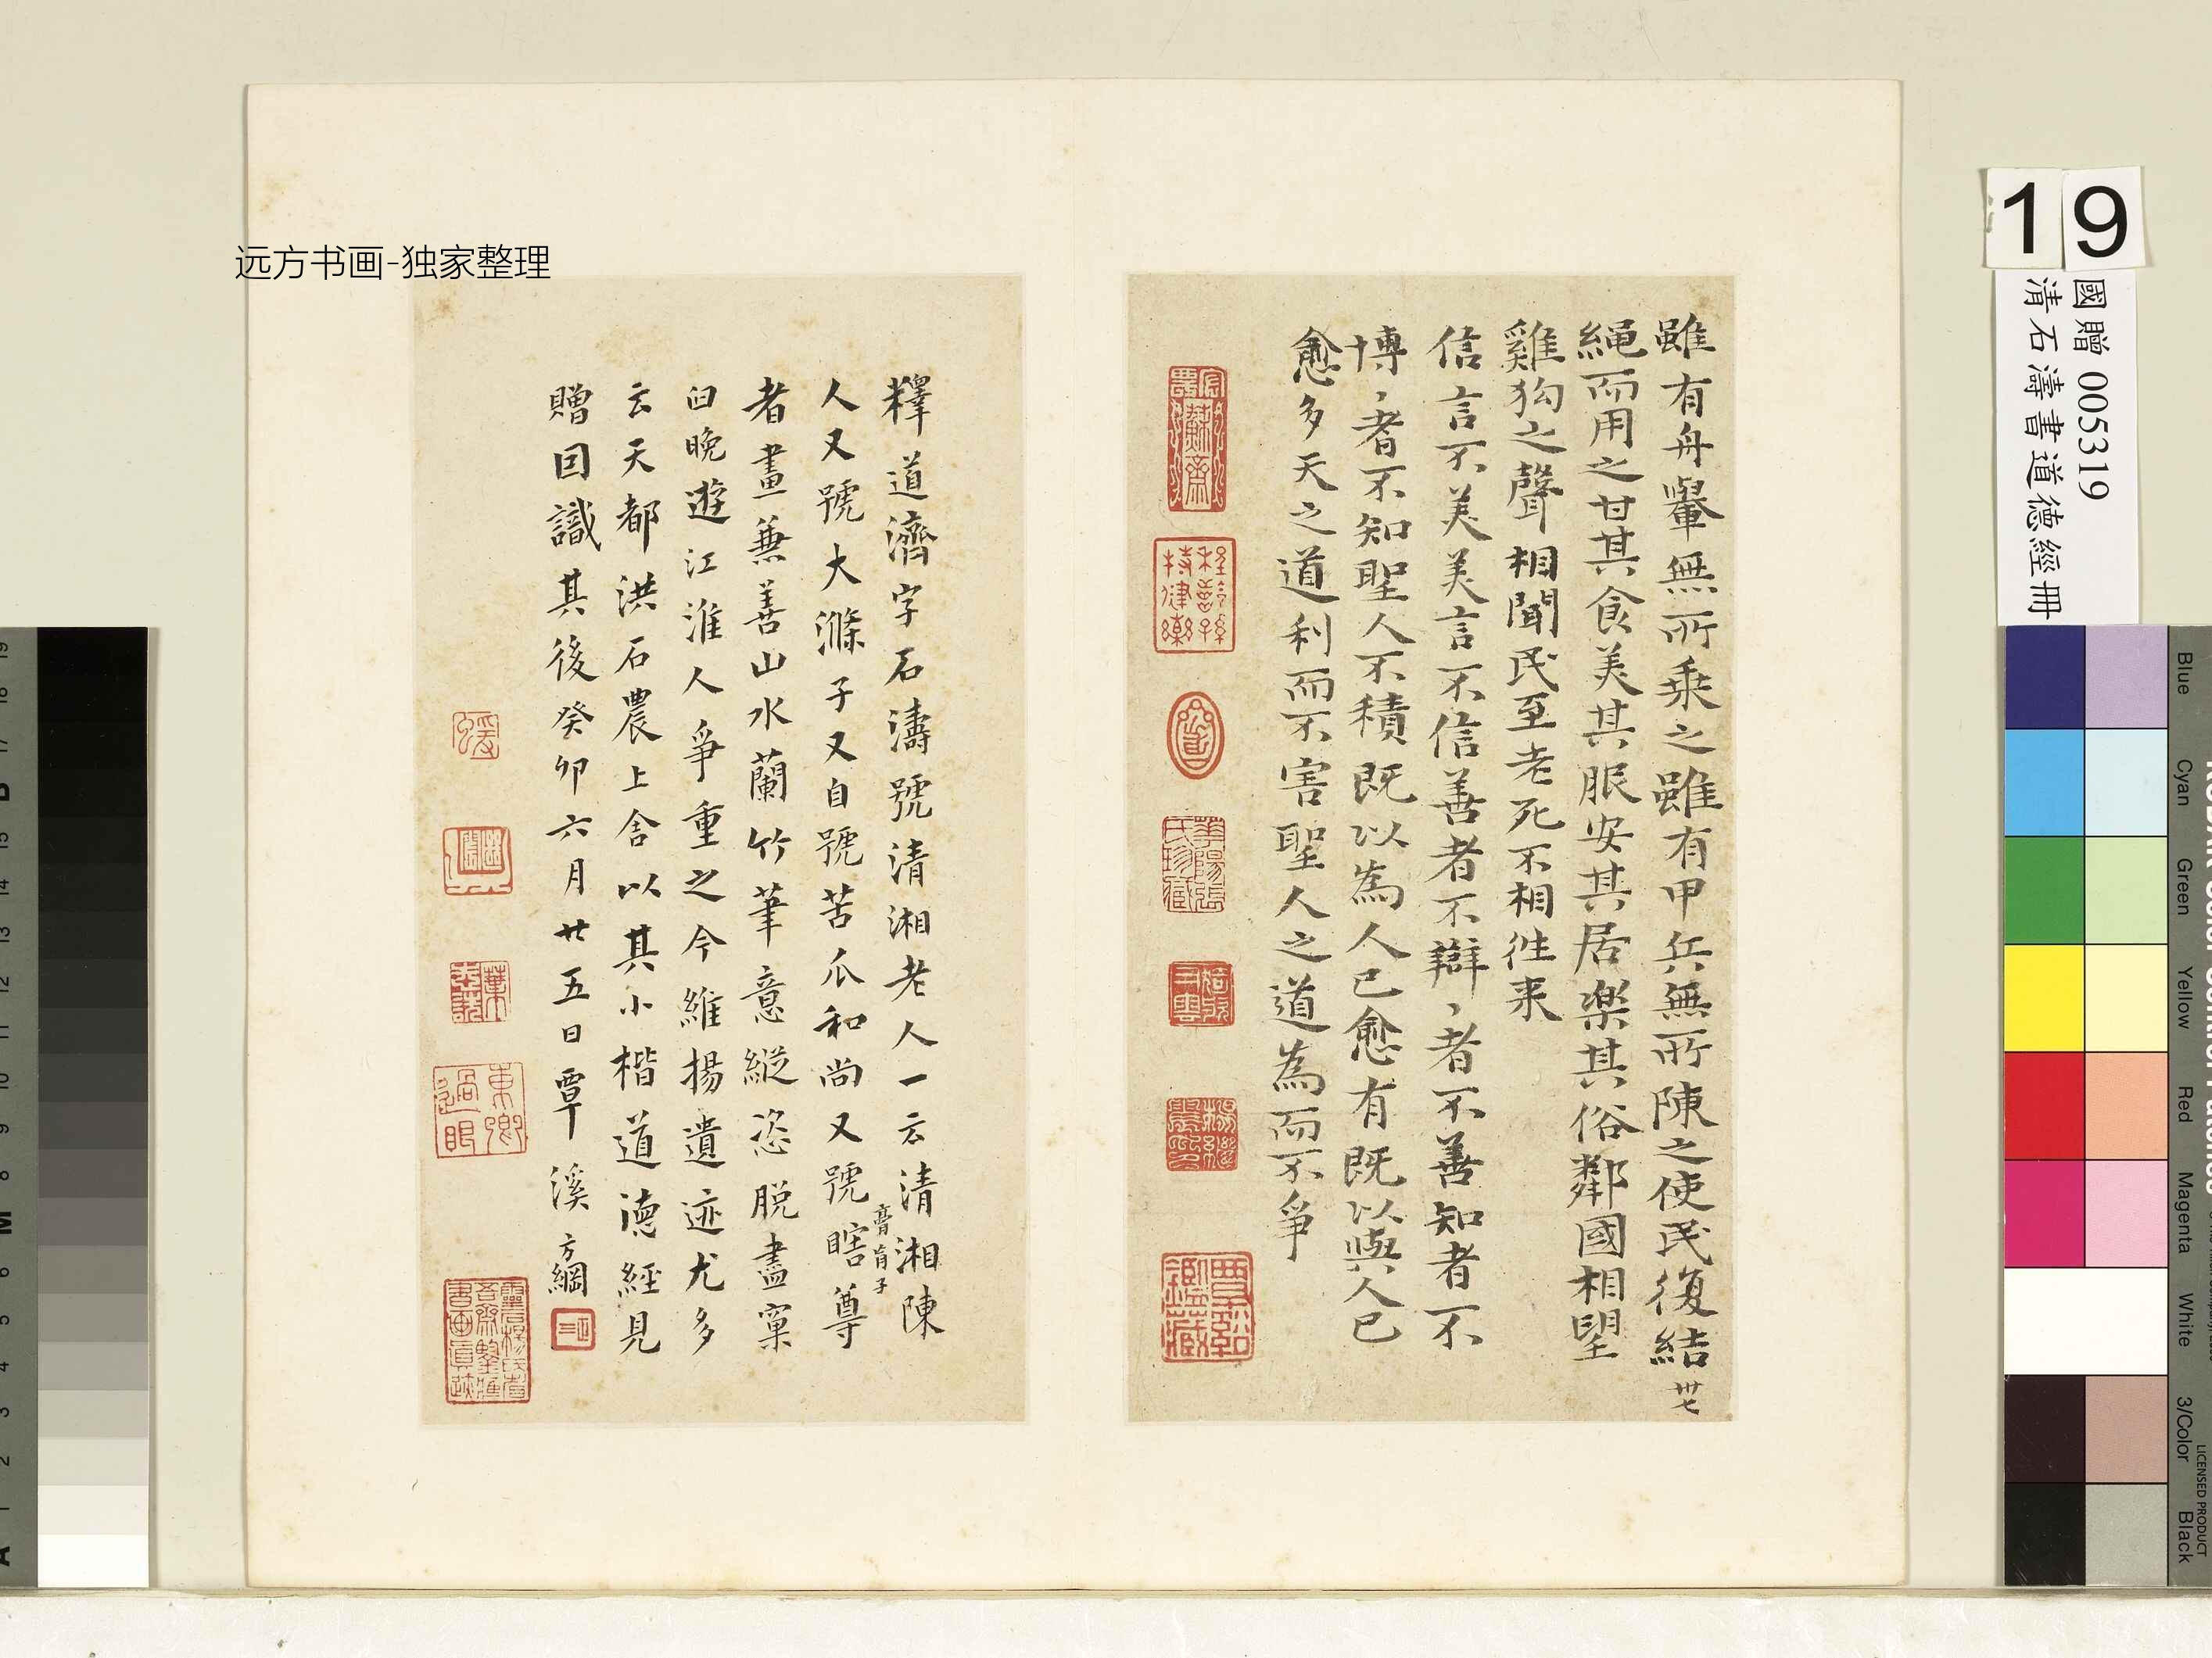 雖有舟轝無所乗之雖有甲兵無所陳之使民復結
卅七
繩而用之甘其食美其服安其居樂其俗鄰國相望
雞狗之聲相聞民至老死不相徃来
信言不美美言不信善者不辯、者不善知者不
博、者不知聖人不積既以為人已愈有既以與人已
愈多天之道利而不害聖人之道為而不爭
釋道濟字石濤號清湘老人一云清湘陳
人又號大滌子又自號苦瓜和尚又號瞎尊
膏肓子
者畫兼善山水蘭竹筆意縱恣脱盡窠
臼晚遊江淮人爭重之今維揚遺迹尤多
云天都洪石農上舍以其小楷道德經見
贈因識其後癸卯六月廿五日覃溪方綱
远方书画-独家整理
19
國贈 005319
清石濤書道德經冊
Blue
Cyan
Green
Yellow
Red
Magenta
White
3/Color
Black
LICENSED PRODUCT
東卿過眼